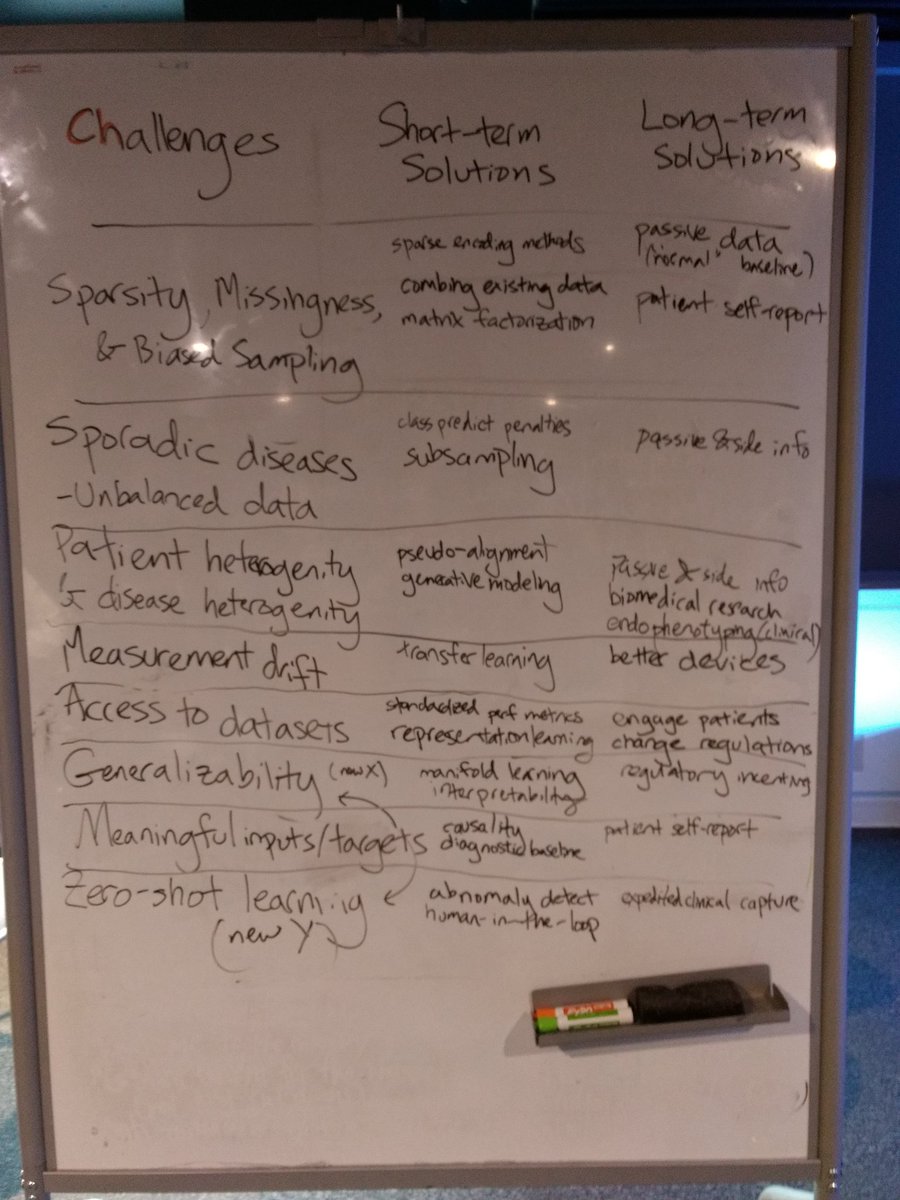 Challenges
Short-term
Solutions
Long-term
Solutions
Sparsity, Missingness,
& Biased Sampling
sparse encoding methods
combing existing data
matrix factorization
passive data
("normal" baseline)
patient self-report
Sporadic diseases
-Unbalanced data
class predict penalties
subsampling
passive & side info
Patient heterogenity
& disease heterogenity
pseudo-alignment
generative modeling
Passive & side info
biomedical research
endophenotyping (clinical)
Measurement drift
transfer learning
better devices
Access to datasets
standardized perf metrics
representation learning
engage patients
change regulations
Generalizability (new X)
manifold learning
interpretability
regulatory incenting
Meaningful inputs/targets
causality
diagnostic baseline
patient self-report
Zero-shot learning
(new Y)
abnomaly detect
human-in-the-loop
expedited clinical capture